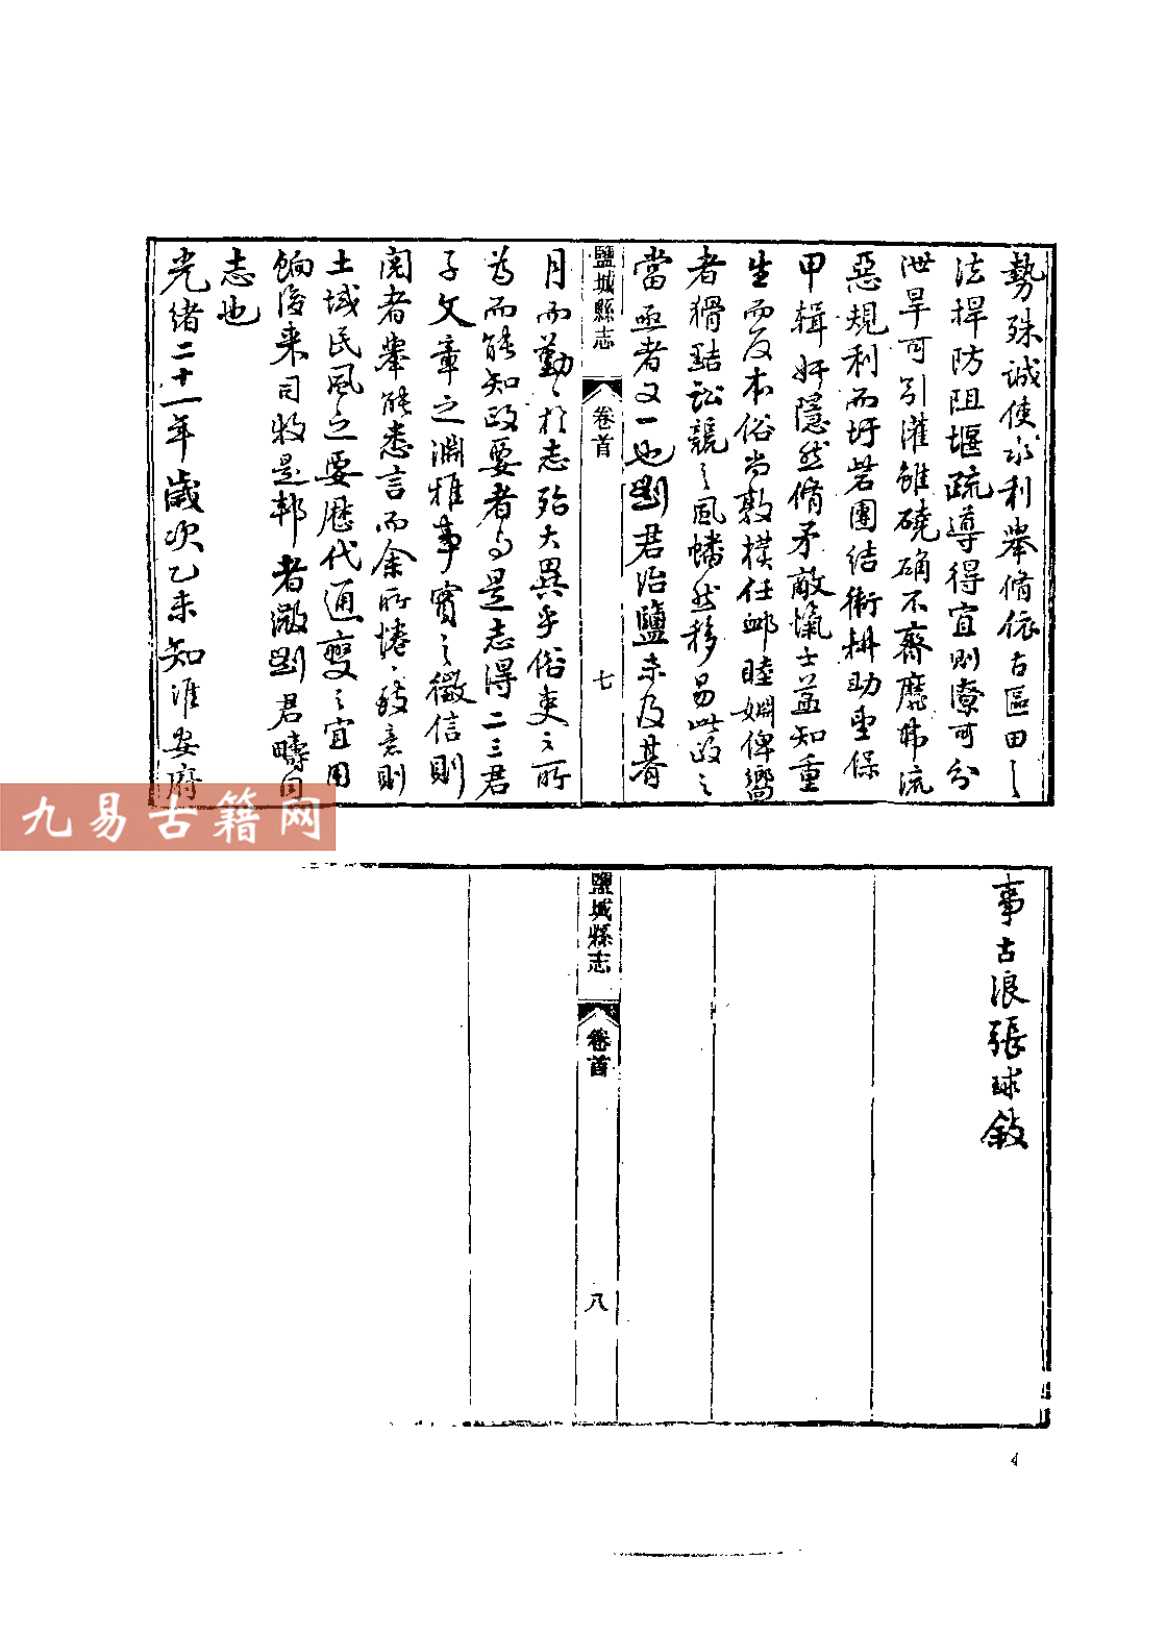 勢殊誠使水利舉脩依古區田之
法捍防阻堰疏導得宜則潦可分
泄旱可引灌雖磽确不齊靡弗流
惡規利而圩砦團結衛耕助望保
甲輯奸隱然脩矛敵愾士益知重
生而反本俗尚敦樸任卹睦婣俾嚮
者猾黠訟競之風幡然移易此政之
當亟者又一也劉君治鹽未及朞
鹽城縣志
卷首
七
月而勤勤於志殆大異乎俗吏之所
為而能知政要者与是志得二三君
子文章之淵雅事實之徵信則
閱者舉能悉言而余所惓惓致意則
土域民風之要歷代通變之宜用
餉後来司牧是邦者微劉君疇因
志也
光緒二十一年歲次乙未知淮安府
九易古籍网
事古浪張球敘
鹽城縣志
卷首
八
4